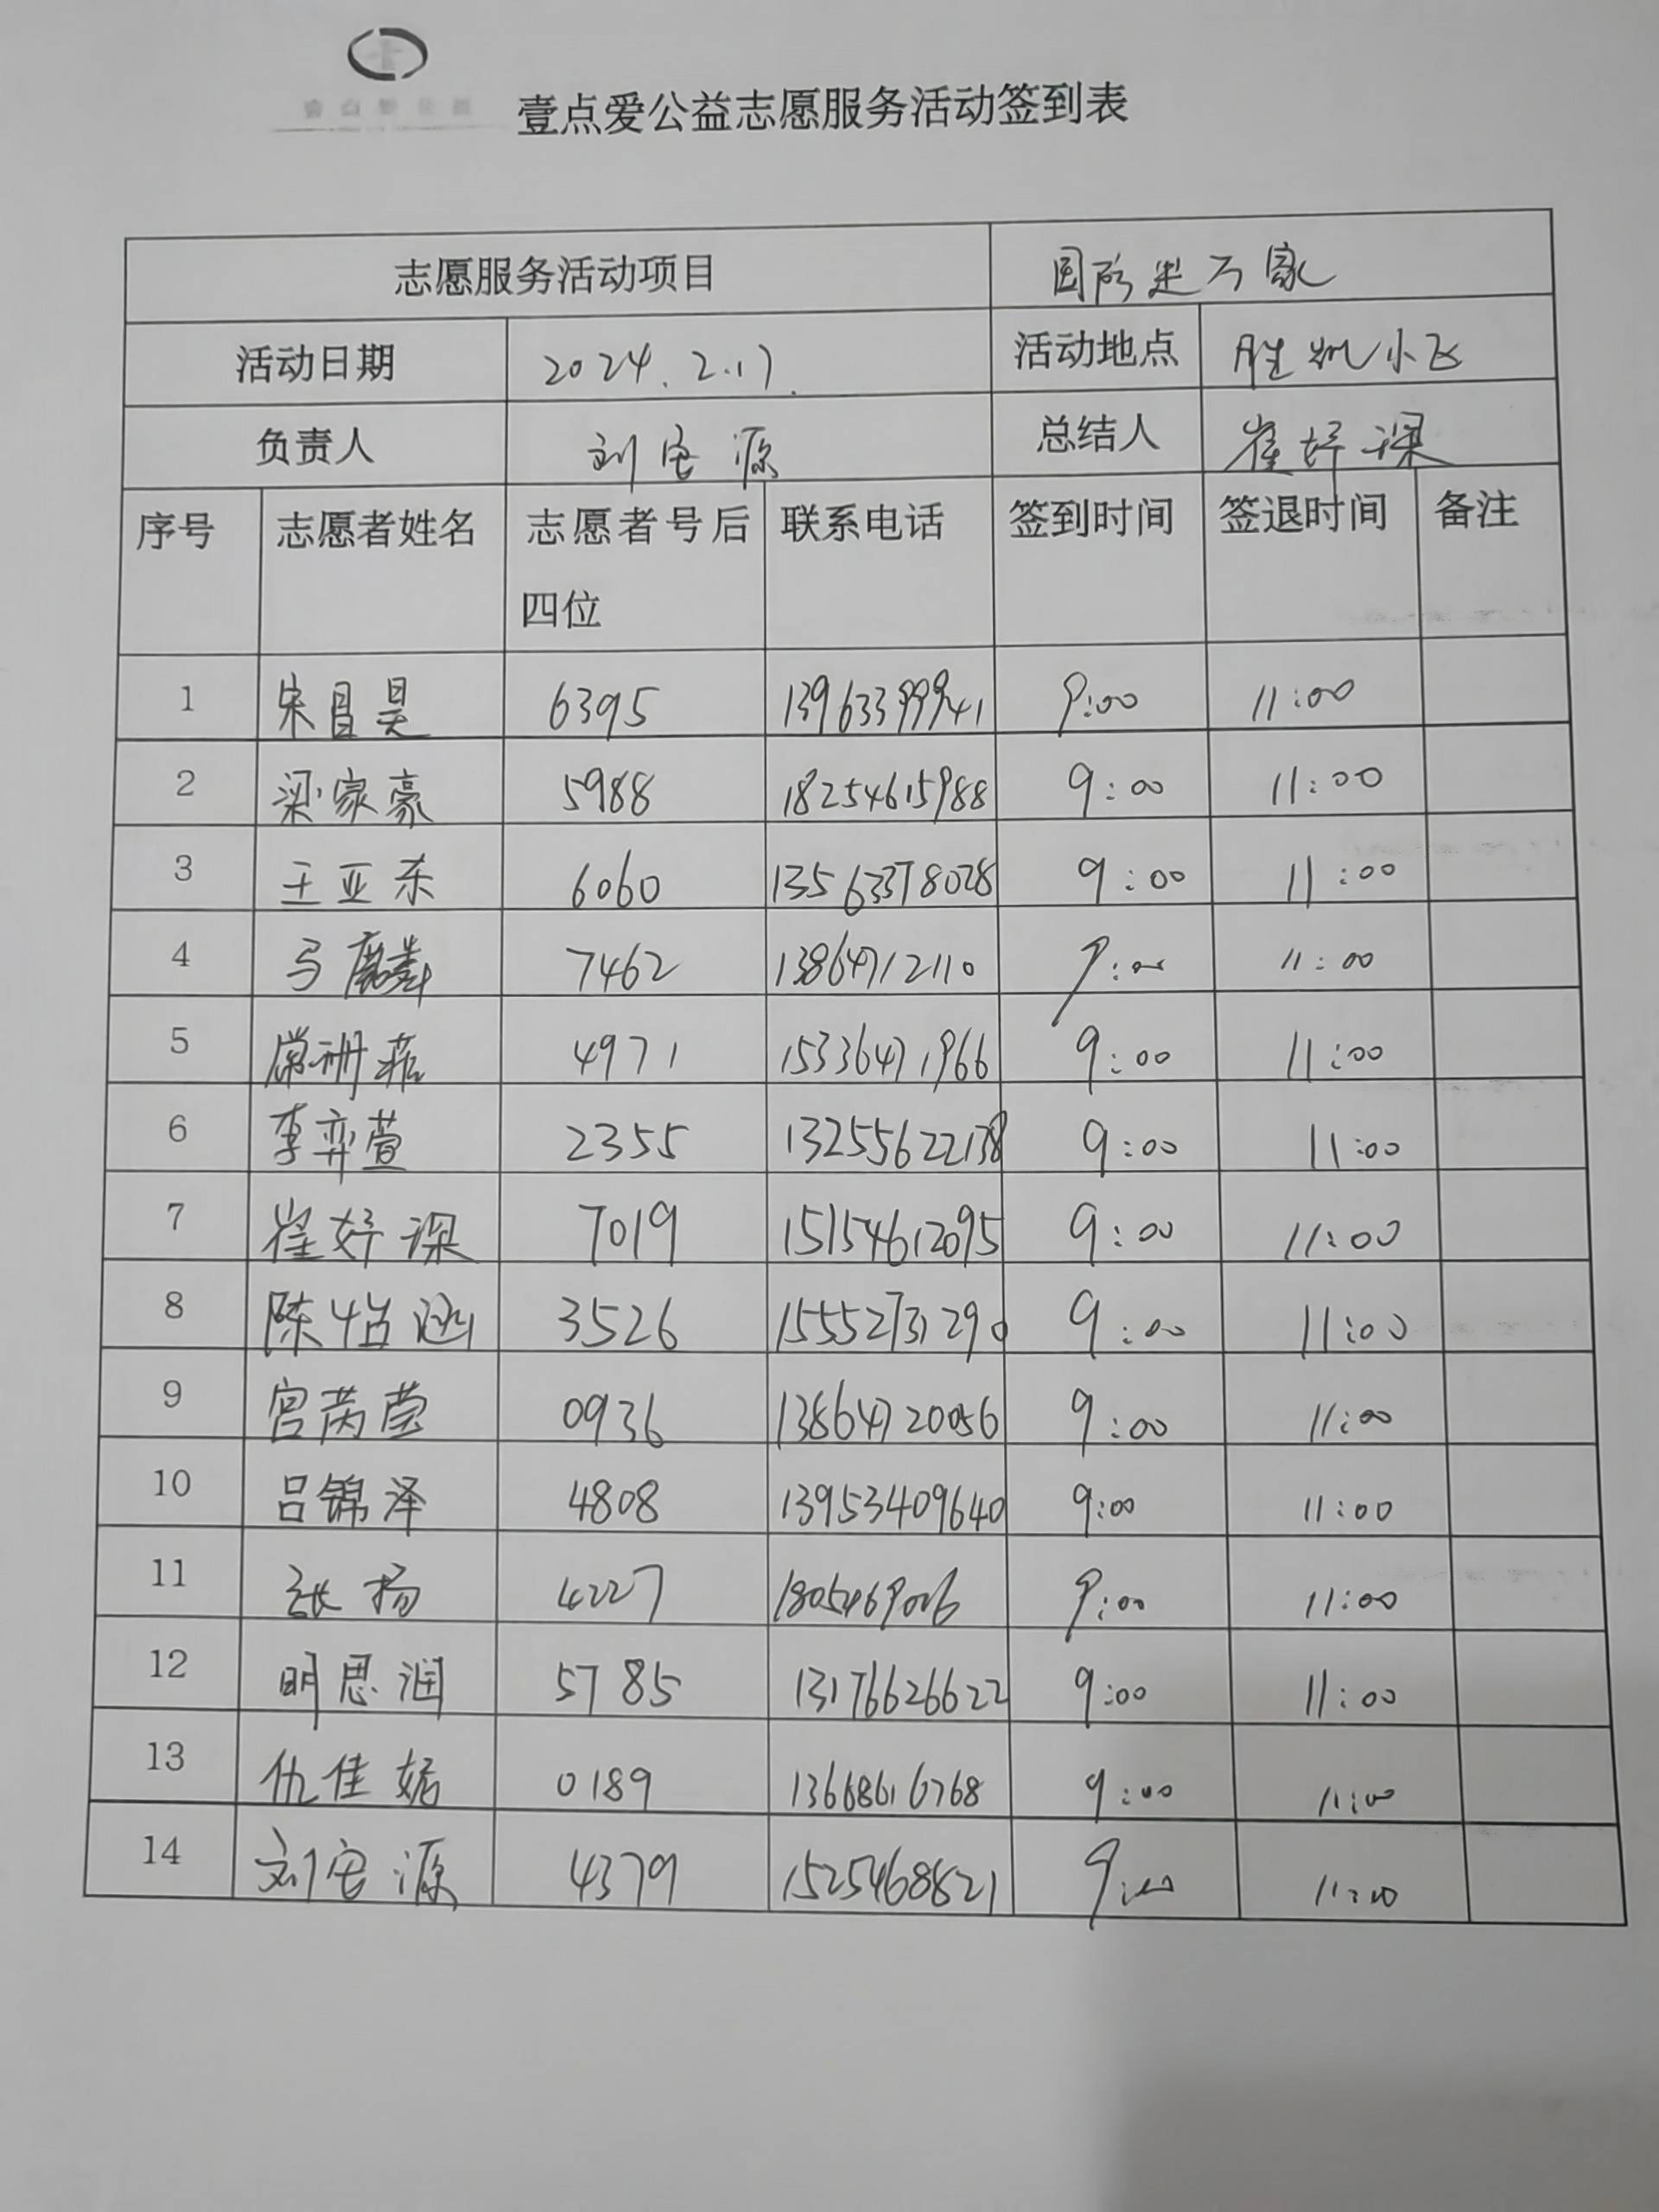 壹点爱公益志愿服务活动签到表
志愿服务活动项目
活动日期 2024.2.17. 活动地点
负责人 刘宏源 总结人 崔妤琛
序号 志愿者姓名 志愿者号后四位 联系电话 签到时间 签退时间 备注
1 宋昌昊 6395 13963399941 9:00 11:00
2 梁家豪 5988 18254615988 9:00 11:00
3 王亚东 6060 13563378028 9:00 11:00
4 马麒麟 7462 13864712110 9:00 11:00
5 4971 15336471966 9:00 11:00
6 李弈萱 2355 13255622138 9:00 11:00
7 崔妤琛 7019 15154612095 9:00 11:00
8 陈怡涵 3526 15552731290 9:00 11:00
9 宫芮莹 0936 13864720056 9:00 11:00
10 吕锦泽 4808 13953409640 9:00 11:00
11 张扬 4227 9:00 11:00
12 明思润 5785 13176626622 9:00 11:00
13 仇佳 0189 13668616768 9:00 11:00
14 刘宏源 4379 15254688521 9:00 11:00